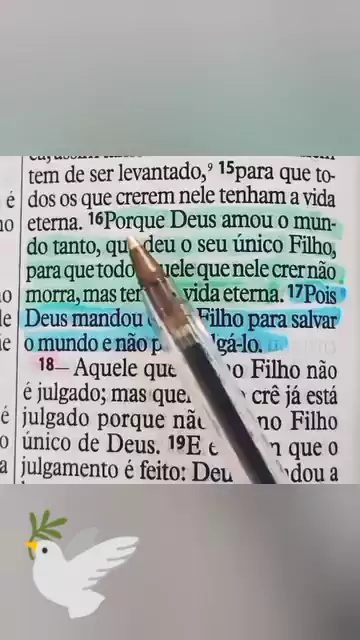 tem de ser levantado,⁹ 15para que to-
dos os que crerem nele tenham a vida
eterna. 16Porque Deus amou o mun-
do tanto, que deu o seu único Filho,
para que todo aquele que nele crer não
morra, mas ter vida eterna. 17Pois
Deus mandou Filho para salvar
o mundo e não julgá-lo.
18— Aquele que no Filho não
é julgado; mas quem crê já está
julgado porque não no Filho
único de Deus. 19E que o
julgamento é feito: Deus mandou a